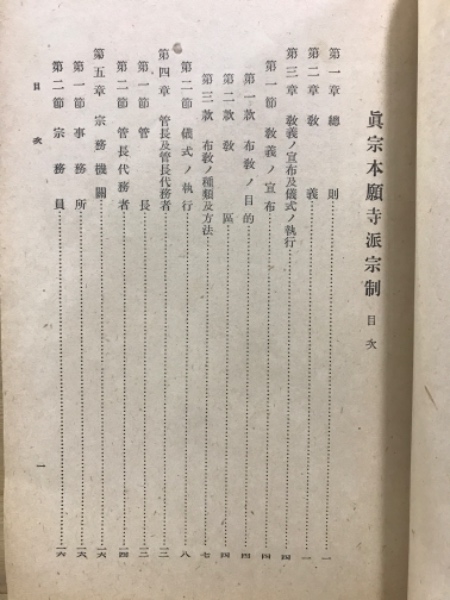 眞宗本願寺派宗制 目次
第一章 總則……一
第二章 敎義……一
第三章 敎義ノ宣布及儀式ノ執行……四
第一節 敎義ノ宣布……四
第一款 布敎ノ目的……四
第二款 敎區……四
第三款 布敎ノ種類及方法……七
第二節 儀式ノ執行……八
第四章 管長及管長代務者……一三
第一節 管長……一三
第二節 管長代務者……一四
第五章 宗務機關……一六
第一節 事務所……一六
第二節 宗務員……一六
目次
一